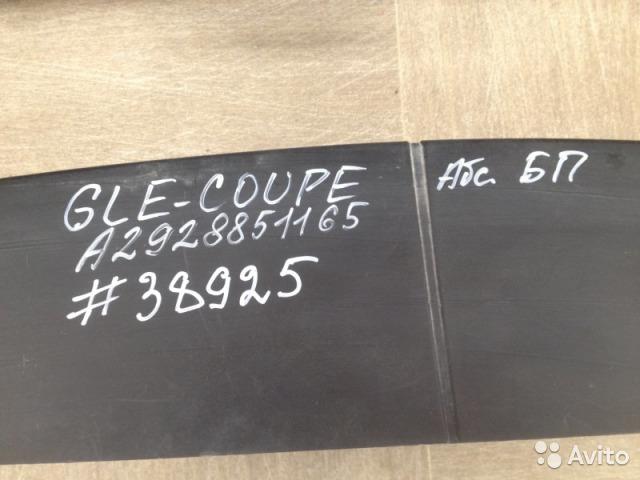 GLE-COUPE
A2928851165
#38925
Абс. БП
Avito